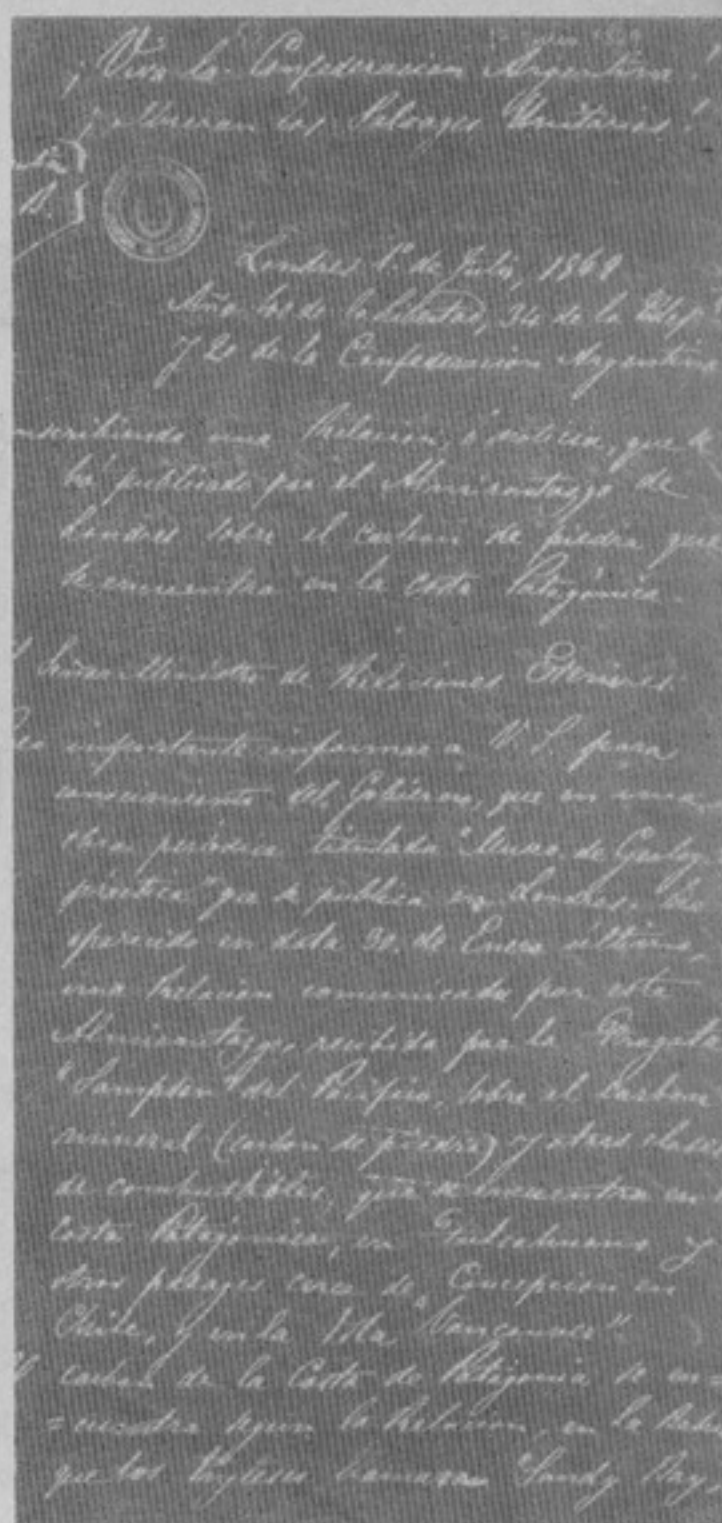 ¡Viva la Confederacion Argentina!
¡Mueran los Salvages Unitarios!
Londres 1º. de Julio, 1849
Año de la Libertad, 34 de la
y 20 de la Confederacion Argentina
una Relacion, ó noticia, que se
há publicado por el Almirantazgo de
Londres sobre el carbon de piedra que
se encuentra en la costa Patagónica.
Señor Ministro de Relaciones Exteriores.
importante informar a V.S. para
conocimiento del Gobierno, que en una
obra periódica titulada "Museo de
práctica" que se publica en Londres, ha
aparecido en data 30. de Enero último,
una Relacion comunicada por este
Almirantazgo, recibida por la Fragata
del Pacifico, sobre el carbon
mineral (carbon de piedra) y otras clases
de combustibles, que se encuentra en
costa Patagonica, en y
otros parages cerca de Concepcion en
Chile, y en la Isla
carbon de la Costa de Patagonia se en=
=cuentra segun la Relacion, en la
que los Yngleses llaman "Sandy Bay,